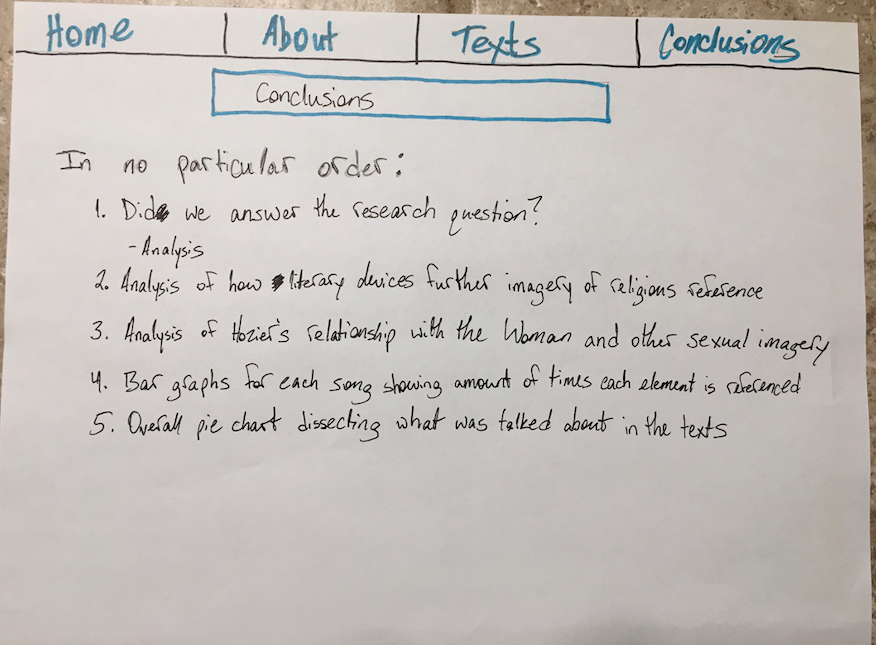 Home About Texts Conclusions
Conclusions
In no particular order:
1. Did we answer the research question?
- Analysis
2. Analysis of how literary devices further imagery of religious reference
3. Analysis of Hozier's relationship with the Woman and other sexual imagery
4. Bar graphs for each song showing amount of times each element is referenced
5. Overall pie chart dissecting what was talked about in the texts